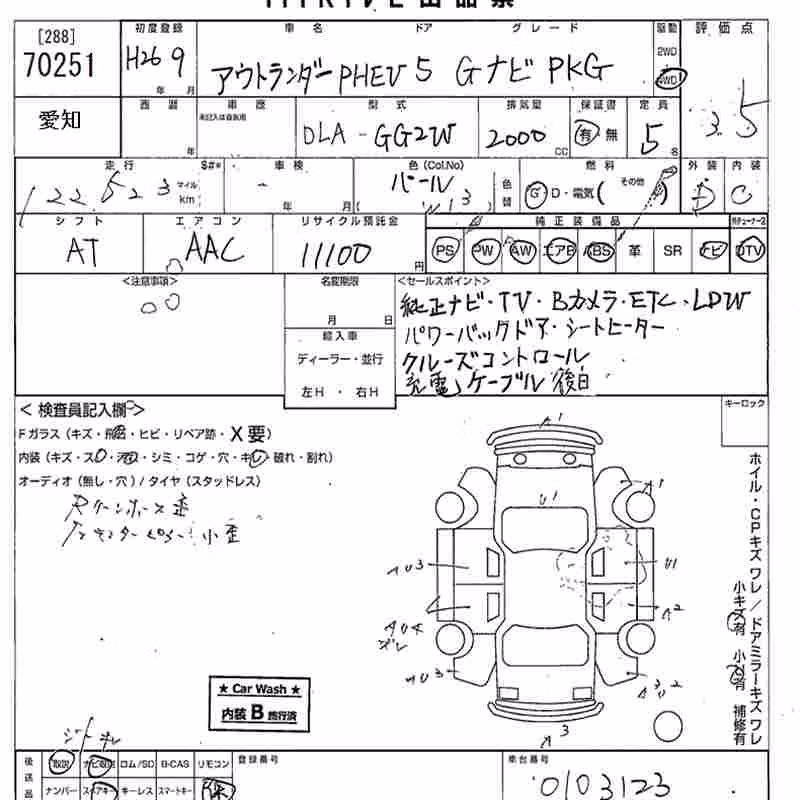 [288]
70251
初度登録
H26 9
年 月
車名 ドア グレード
アウトランダーPHEV 5 Gナビ PKG
駆動
2WD
4WD
評価点
3.5
愛知
西暦
年
車歴
未記入は自家用
型式
DLA-GG2W
排気量
2000
CC
保証書
有・無
定員
5
名
走行
$#*
122,523
マイル
km
車検
年 月
色(Col.No)
パール
W13
色替
燃料
G D・電気( その他 )
外装
D
内装
C
シフト
AT
エアコン
AAC
リサイクル預託金
11100
円
純正装備品
PS PW AW エアB ABS 革 SR ナビ DTV
<注意事項>
名変期限
月 日
輸入車
ディーラー・並行
左H ・ 右H
<セールスポイント>
純正ナビ・TV・Bカメラ・ETC・LDW
パワーバックドア・シートヒーター
クルーズコントロール
充電ケーブル後日
キーロック
<検査員記入欄>
Fガラス(キズ・飛石・ヒビ・リペア跡・X要)
内装(キズ・スレ・汚れ・シミ・コゲ・穴・キレ・破れ・割れ)
オーディオ(無し・穴)/タイヤ(スタッドレス)
小歪
A1
A1
U1
AU3
U1
A2
AU4
ズレ
AU3
A3U2
A3
ホイル・CPキズ ワレ/ドアミラーキズ ワレ
小キズ有 小凹有 補修有
★ Car Wash ★
内装 B 施行済
後送品
取説 ナビ取説 ロム/SD B-CAS リモコン
ナンバー スペアキー キーレス スマートキー
登録番号
車台番号
0103123